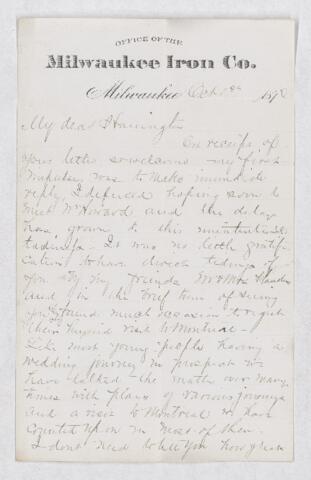 OFFICE OF THE
Milwaukee Iron Co.
Milwaukee Oct 187
My dear Harrington
On receipt of
your letter so welcome my first
impulse was to make immediate
reply. I deferred hoping soon to
meet Mr Howard and the delay
has grown to this
It was no
to have direct tidings of
you by my friends Mr & Mrs
and in the brief time of seeing
you found much occasion to
their visit to Montreal -
Like most young people having a
wedding journey in prospect we
have talked the matter over many
times with plans of various journeys
and a visit to Montreal we have
counted upon in most of them.
I dont need to tell you how great